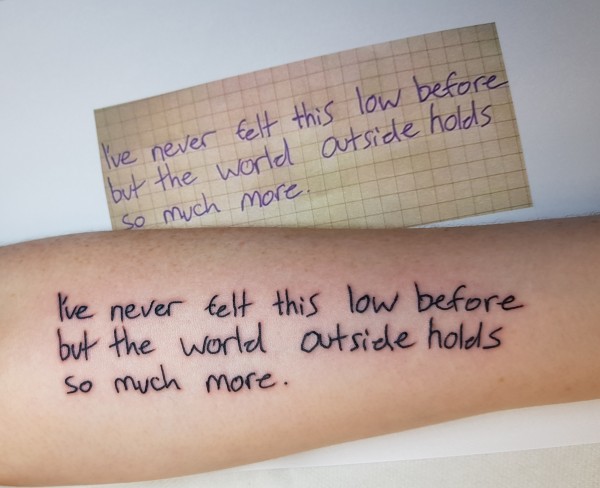 I've never felt this low before
but the world outside holds
so much more.
I've never felt this low before
but the world outside holds
so much more.